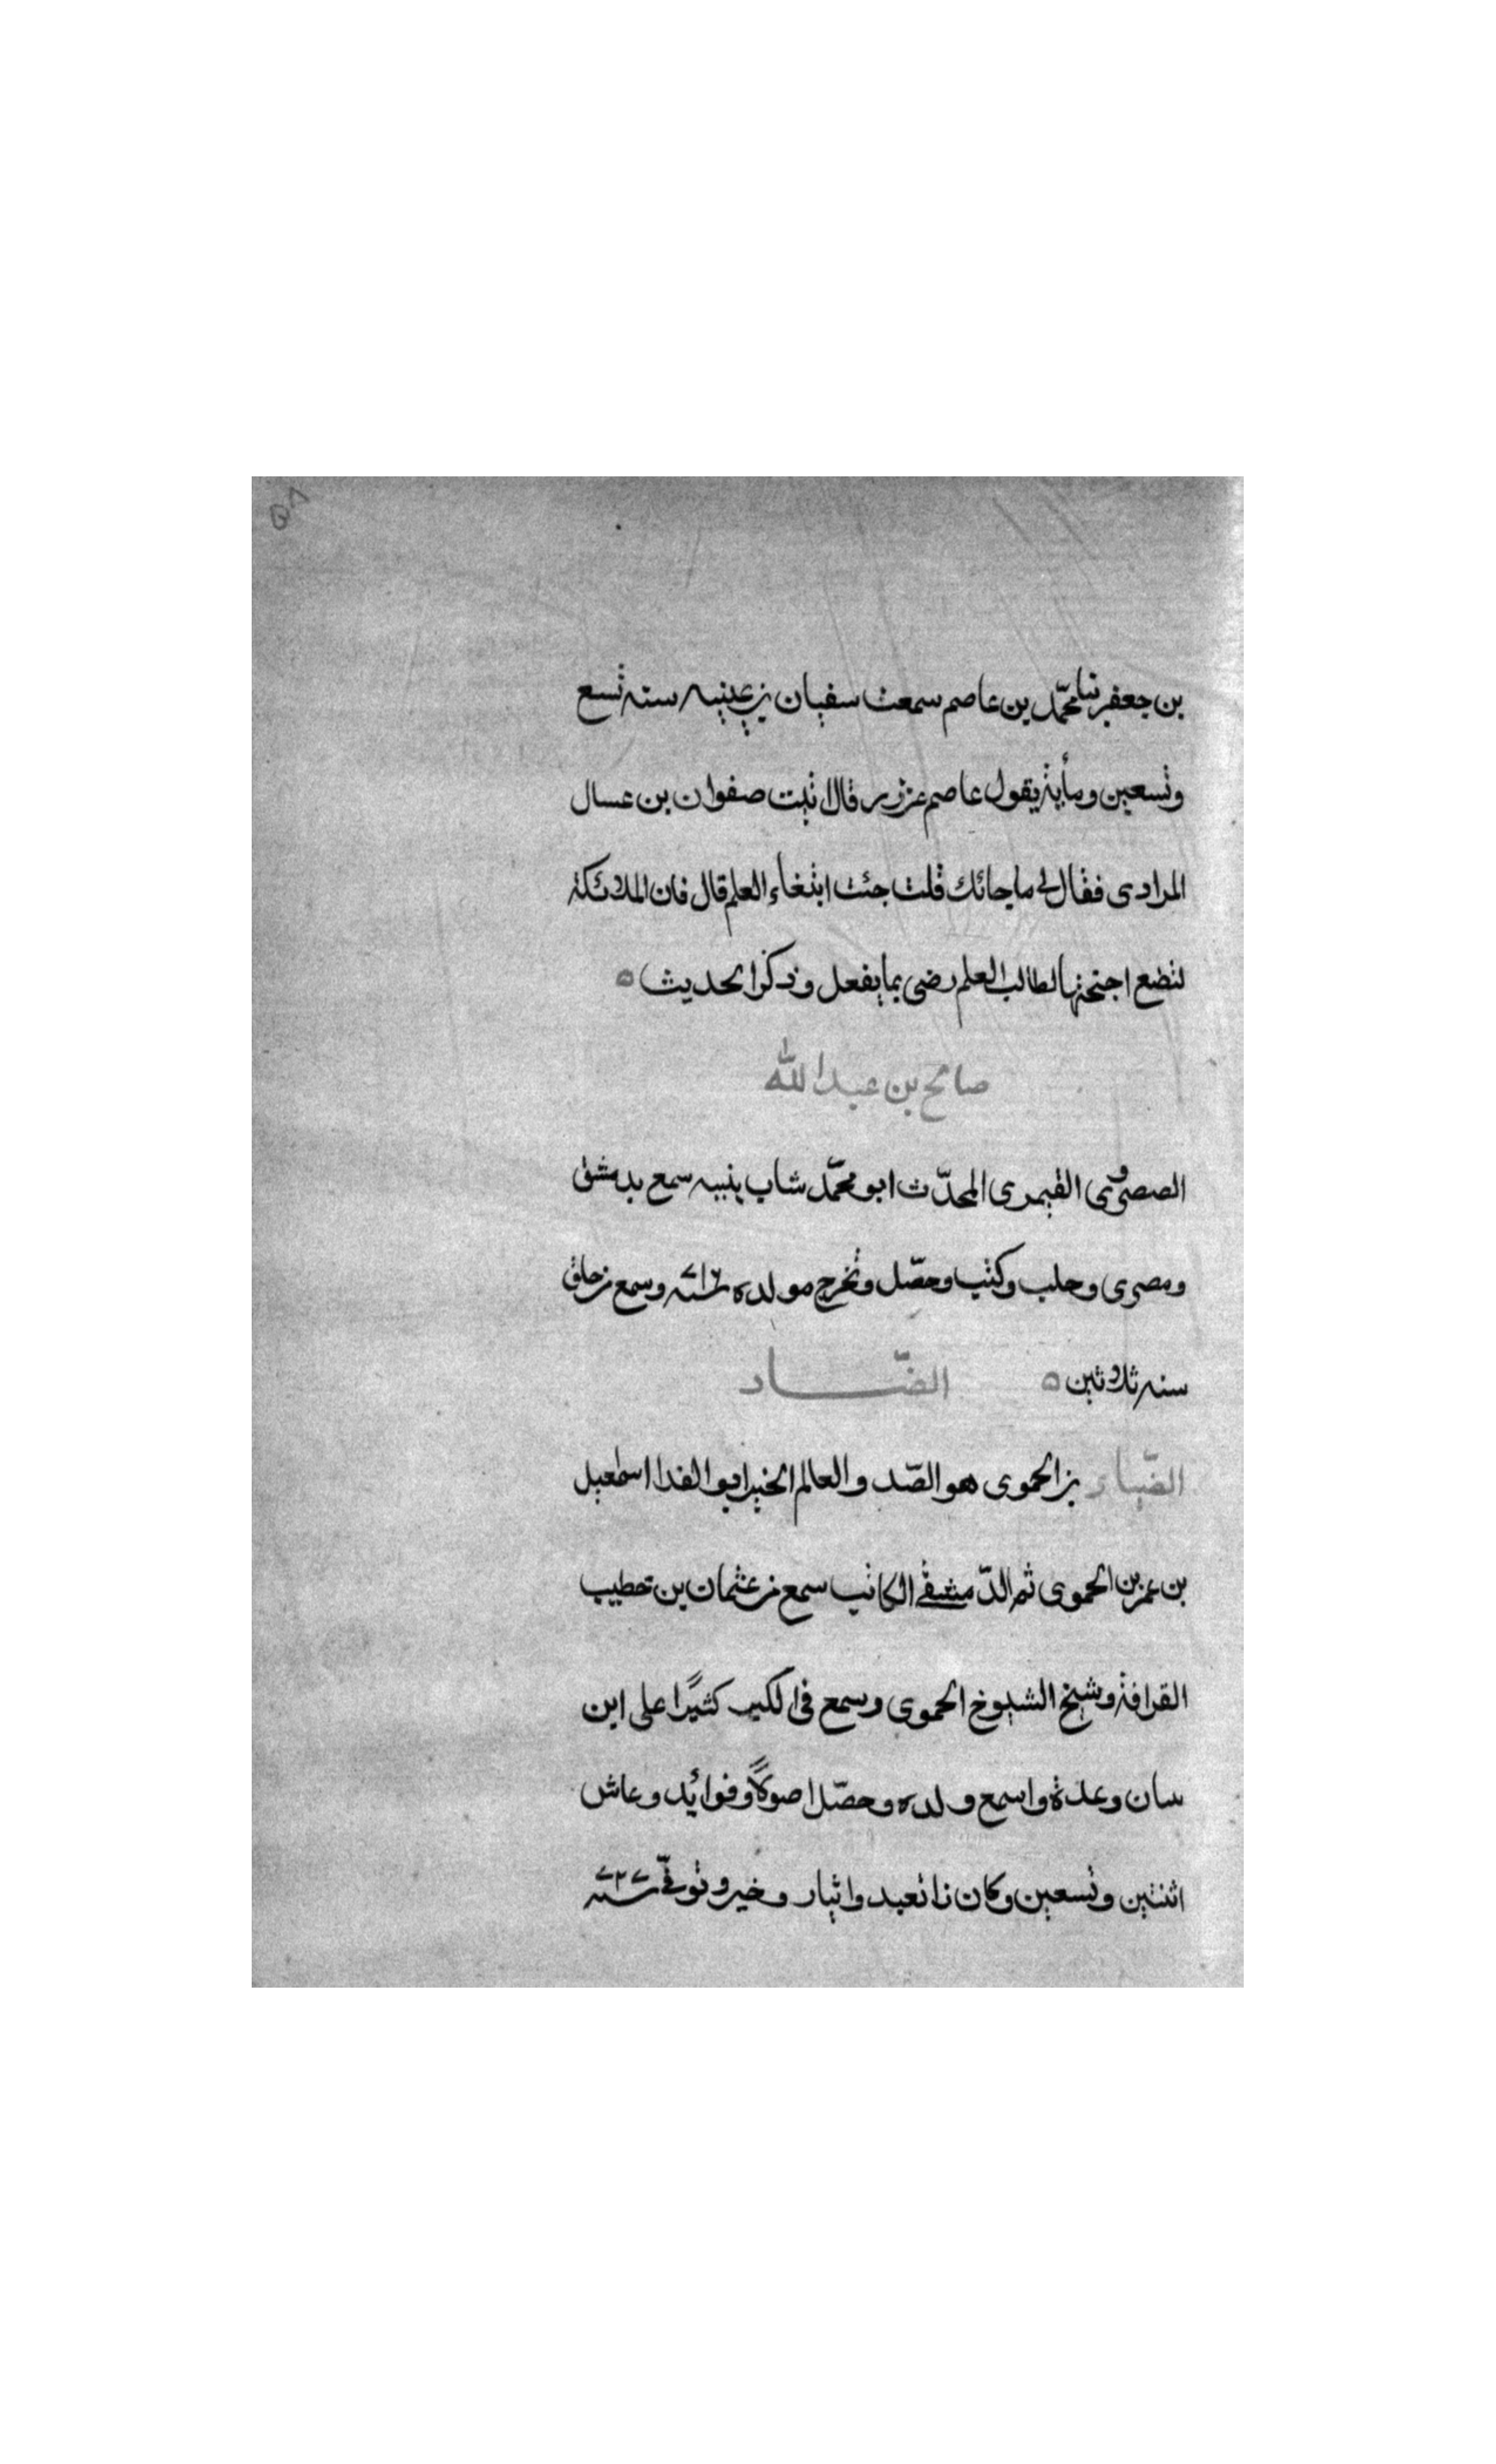 بن جعفر ثنا محمّد بن عاصم سمعت سفيان بن عيينه سنه تسع
وتسعين ومأية يقول عاصم عن زر قال اتيت صفوان بن عسال
المرادى فقال لى ما جائك قلت جئت ابتغاء العلم قال فان الملائكة
لتضع اجنحتها لطالب العلم رضى بما يفعل وذكر الحديث ه
صالح بن عبد الله
القيمرى المحدّث ابو محمّد شاب ينبيه سمع بدمشق
ومصرى وحلب وكتب وحصّل وتخرج مولده سنه ٧١٢ وسمع من خلق
سنه ثلاثين ه الضّاد
الضّياء بن الحموى هو الصّدر العالم الخير ابو الفدا اسمعيل
بن عمر بن الحموى ثم الدّمشقى الكاتب سمع من عثمان بن خطيب
القرافة وشيخ الشيوخ الحموى وسمع فى الكبر كثيرًا على ابن
سان وعدة واسمع ولده وحصّل اصولاً وفوائد وعاش
اثنتين وتسعين وكان ذا تعبد وايثار وخير وتوفّى سنه ٧٢٧